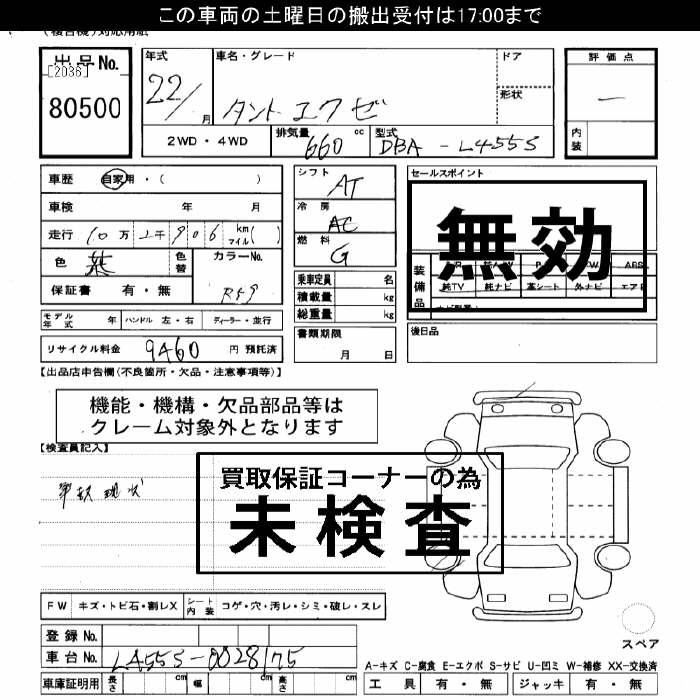 この車両の土曜日の搬出受付は17:00まで
出品No.
[2036]
80500
年式
22/
月
車名・グレード
タント エクゼ
ドア
形状
評価点
一
内装
2WD・4WD
排気量
660
cc
型式
DBA-L455S
車歴 自家用・( )
車検 年 月
走行 10万2千906 km マイル( )
色 紫 色替 カラーNo.
R59
保証書 有・無
シフト AT
冷房 AC
燃料 G
乗車定員 名
積載量 kg
総重量 kg
書類期限
月 日
セールスポイント
無効
装備品
ABS
純TV 純ナビ 革シート 外ナビ
後日品
モデル年式 年 ハンドル 左・右 ディーラー・並行
リサイクル料金 9460 円 預託済
【出品店申告欄(不良箇所・欠品・注意事項等)】
機能・機構・欠品部品等は
クレーム対象外となります
【検査員記入】
事故現状
買取保証コーナーの為
未検査
FW キズ・トビ石・割レX シート内装 コゲ・穴・汚レ・シミ・破レ・スレ
登録No.
車台No. LA55S-0028175
車庫証明用 長さ cm 幅 cm 高さ cm
スペア
A-キズ C-腐食 E-エクボ S-サビ U-凹ミ W-補修 XX-交換済
工具 有・無 ジャッキ 有・無